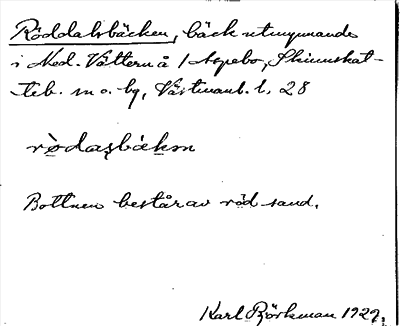 Röddalsbäcken, bäck utmynnande
i Ned. Vättern å / Aspebo, Skinnskat-
teb. m o. bg, Västmanl. l. 28
rödasbäkm
Bottnen består av röd sand.
Karl Björkman 1929.